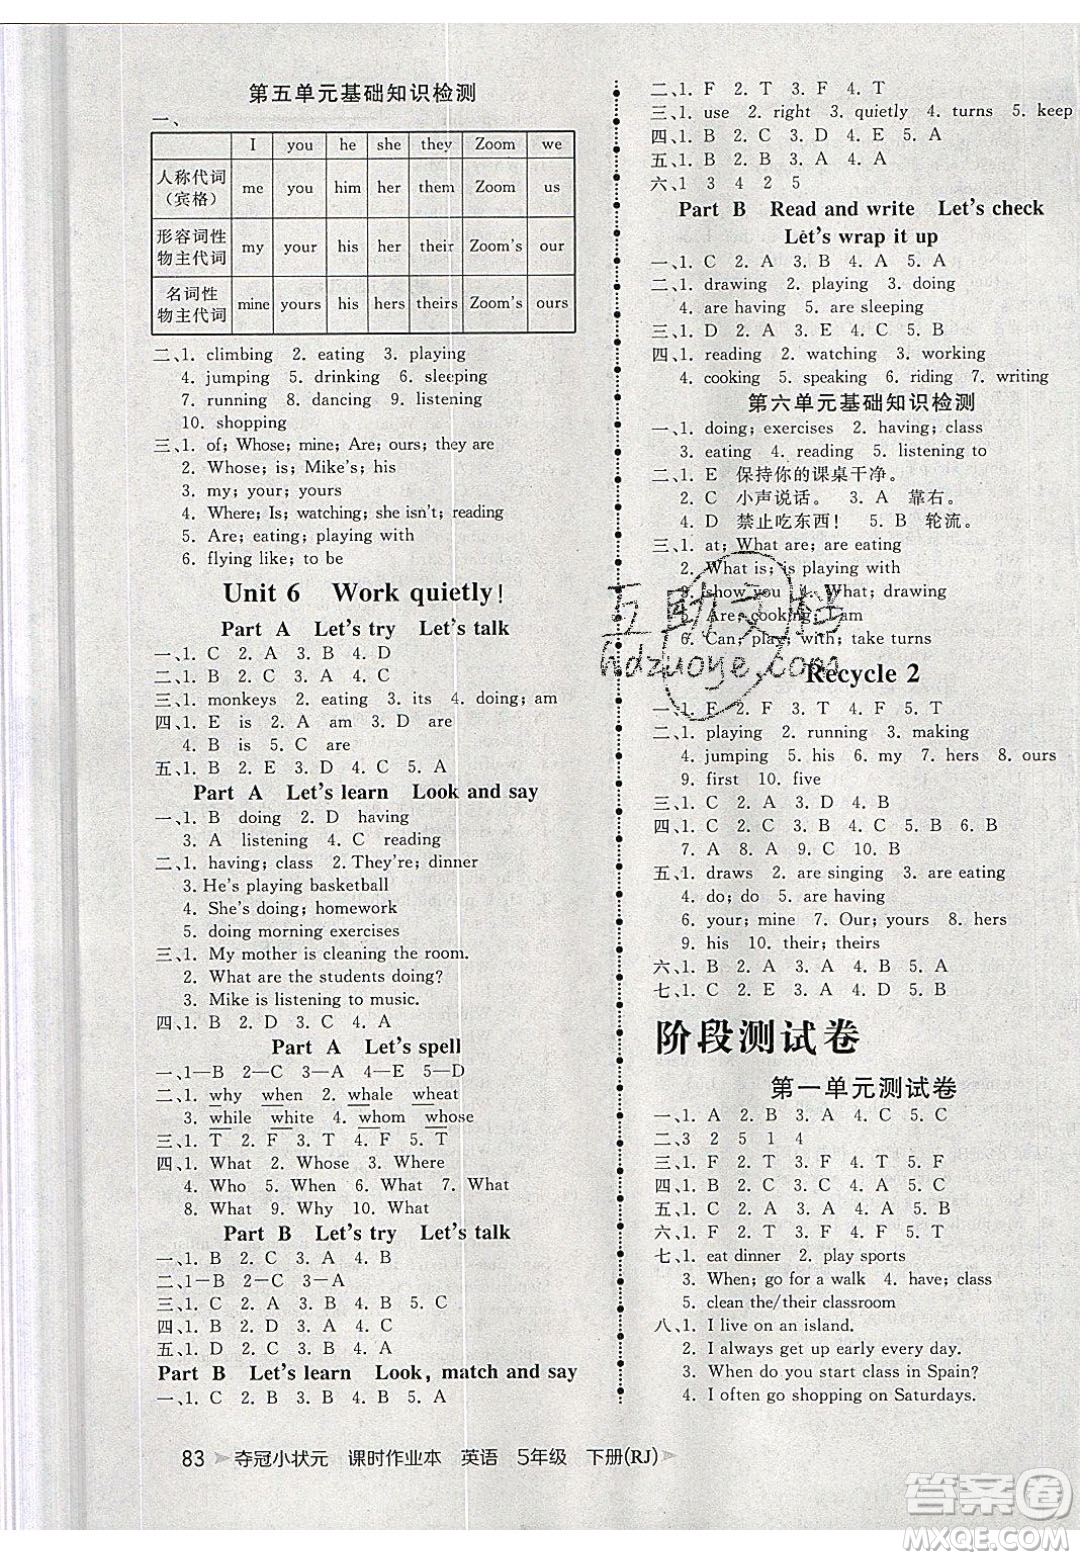 第五单元基础知识检测
一、
I you he she they Zoom we
人称代词（宾格） me you him her them Zoom us
形容词性物主代词 my your his her their Zoom's our
名词性物主代词 mine yours his hers theirs Zoom's ours
二、1. climbing 2. eating 3. playing
4. jumping 5. drinking 6. sleeping
7. running 8. dancing 9. listening
10. shopping
三、1. of; Whose; mine; Are; ours; they are
2. Whose; is; Mike's; his
3. my; your; yours
4. Where; Is; watching; she isn't; reading
5. Are; eating; playing with
6. flying like; to be
Unit 6 Work quietly!
Part A Let's try Let's talk
一、1. C 2. A 3. B 4. D
二、1. C 2. B 3. A 4. C
三、1. monkeys 2. eating 3. its 4. doing; am
四、1. E is 2. A am 3. D are
4. B is 5. C are
五、1. B 2. E 3. D 4. C 5. A
Part A Let's learn Look and say
一、1. B doing 2. D having
3. A listening 4. C reading
二、1. having; class 2. They're; dinner
3. He's playing basketball
4. She's doing; homework
5. doing morning exercises
三、1. My mother is cleaning the room.
2. What are the students doing?
3. Mike is listening to music.
四、1. B 2. D 3. C 4. A
Part A Let's spell
一、1—B 2—C 3—A 4—E 5—D
二、1. why when 2. whale wheat
3. while white 4. whom whose
三、1. T 2. F 3. T 4. F 5. T
四、1. What 2. Whose 3. Where
4. Who 5. When 6. What 7. What
8. What 9. Why 10. What
Part B Let's try Let's talk
一、1. B 2. C 3. A 4. B
二、1—B 2—C 3—D 4—A
三、1. C 2. A 3. D 4. B 5. C
四、1. B 2. D 3. A 4. C
五、1. D 2. B 3. C 4. A
Part B Let's learn Look, match and say
一、1. C 2. B 3. A 4. B 5. A
二、1. F 2. T 3. F 4. T
三、1. use 2. right 3. quietly 4. turns 5. keep
四、1. B 2. C 3. D 4. E 5. A
五、1. B 2. B 3. A 4. A
六、1 3 4 2 5
Part B Read and write Let's check
Let's wrap it up
一、1. C 2. A 3. B 4. A 5. A
二、1. drawing 2. playing 3. doing
4. are having 5. are sleeping
三、1. D 2. A 3. E 4. C 5. B
四、1. reading 2. watching 3. working
4. cooking 5. speaking 6. riding 7. writing
第六单元基础知识检测
一、1. doing; exercises 2. having; class
3. eating 4. reading 5. listening to
二、1. E 保持你的课桌干净。
2. C 小声说话。 3. A 靠右。
4. D 禁止吃东西! 5. B 轮流。
三、1. at; What are; are eating
2. What is; is playing with
3. show you 4. What; drawing
5. Are; cooking; I am
6. Can; play; with; take turns
Recycle 2
一、1. F 2. F 3. T 4. F 5. T
二、1. playing 2. running 3. making
4. jumping 5. his 6. my 7. hers 8. ours
9. first 10. five
三、1. C 2. A 3. D 4. B
四、1. C 2. B 3. A 4. C 5. B 6. B
7. A 8. A 9. C 10. A
五、1. draws 2. are singing 3. are eating
4. do; do 5. are having
6. your; mine 7. Our; yours 8. hers
9. his 10. their; theirs
六、1. B 2. B 3. A 4. B 5. A
七、1. C 2. E 3. A 4. D 5. B
阶段测试卷
第一单元测试卷
一、1. A 2. B 3. A 4. C 5. C
二、3 2 5 1 4
三、1. F 2. T 3. F 4. T 5. F
四、1. B 2. C 3. A 4. A 5. C
五、1. C 2. A 3. B 4. C 5. A
六、1. F 2. T 3. T 4. F 5. T
七、1. eat dinner 2. play sports
3. When; go for a walk 4. have; class
5. clean the/their classroom
八、1. I live on an island.
2. I always get up early every day.
3. When do you start class in Spain?
4. I often go shopping on Saturdays.
83 夺冠小状元 课时作业本 英语 5年级 下册(RJ)
互助文档
hdzuoye.com
答案圈
MXQE.COM